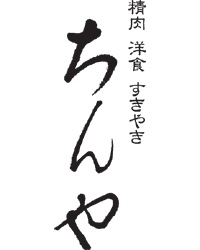 精肉 洋食 すきやき
ちんや